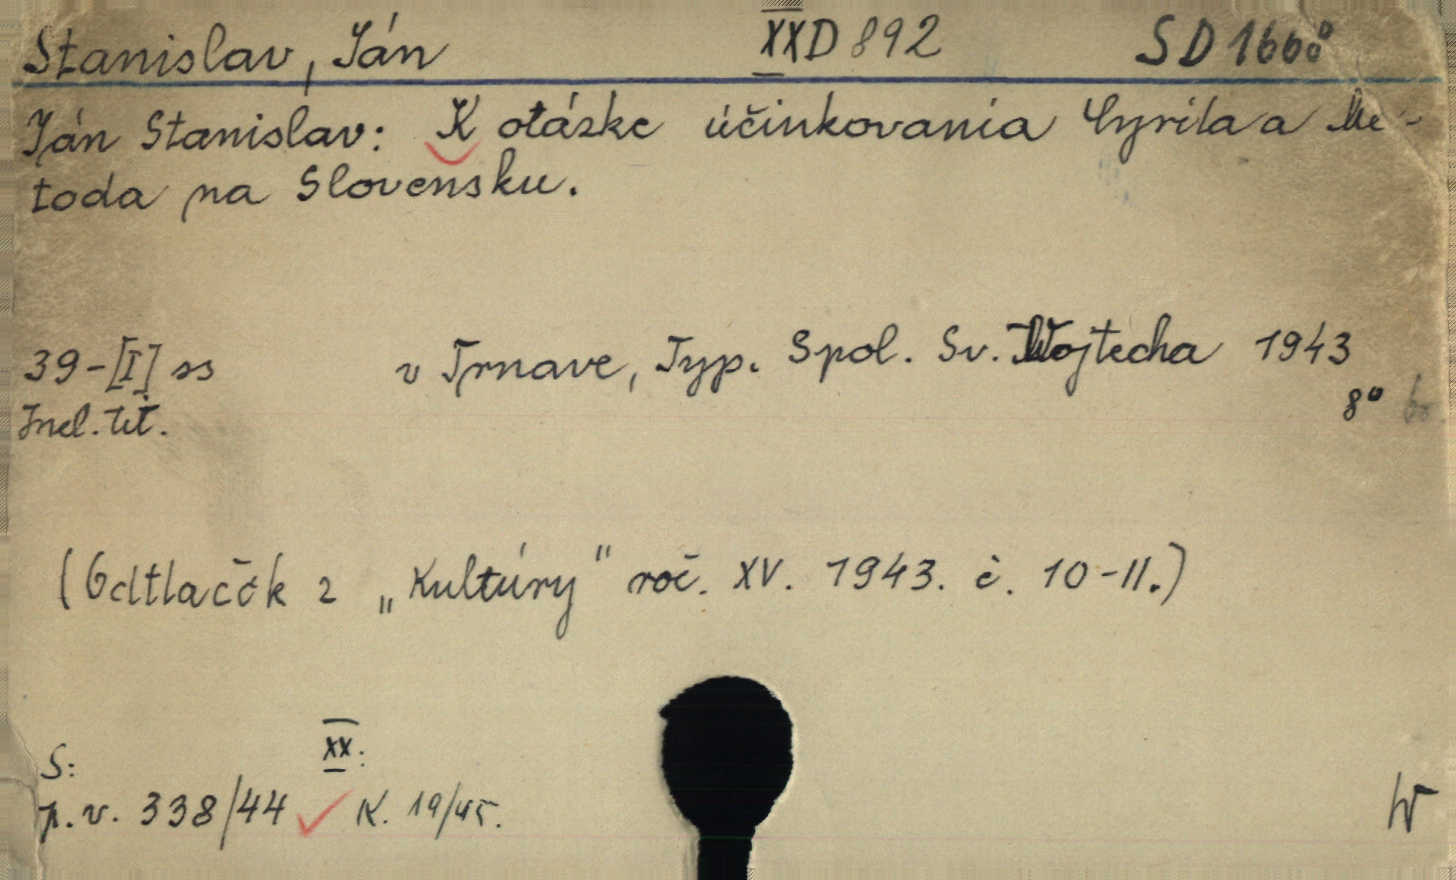 Stanislav, Ján XXD 892 SD 1668
Ján Stanislav: K otázke účinkovania Cyrila a Me-
toda na Slovensku.
39-[I] ss v Trnave, Typ. Spol. Sv. Vojtecha 1943
Incl. tit. 8°
(Odtlačok z „Kultúry" roč. XV. 1943. č. 10-11.)
S: XX:
p.v. 338/44 K. 19/45.
W